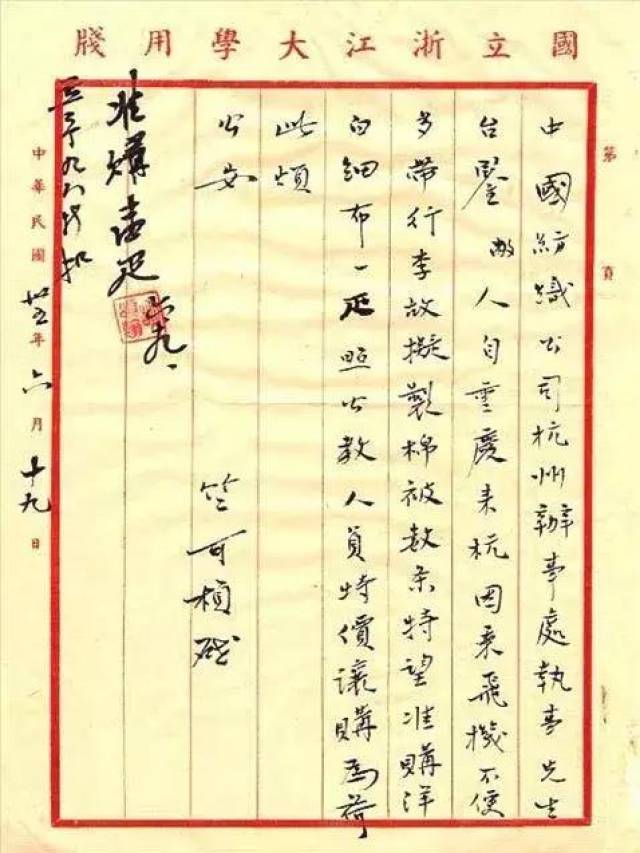 國立浙江大學用牋
第 頁
中國紡織公司杭州辦事處執事先生
台鑒 敝人自重慶来杭因乘飛機不便
多帶行李故擬製棉被数条特望准購洋
白細布一疋照公教人員特價讓購為荷
此頌
公安
竺可楨啟
准購壹疋
中華民國卅五年六月十九日